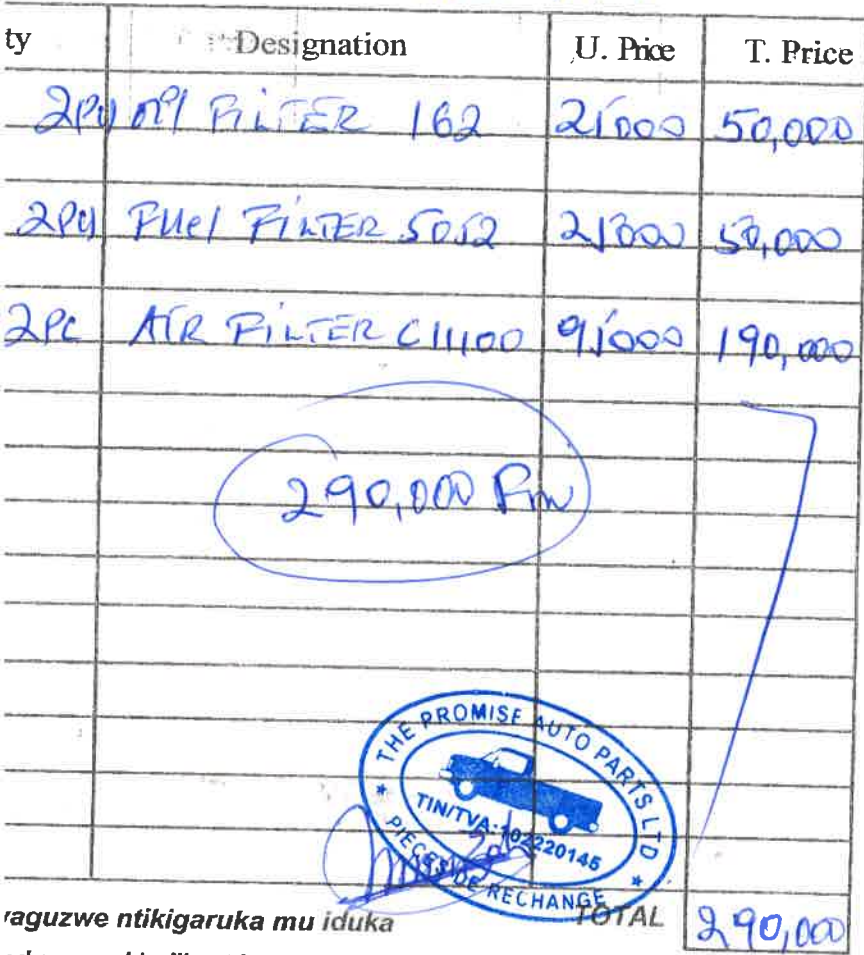 ty Designation U. Price T. Price
FILTER 162 50,000
Fuel FILTER 5052 50,000
2PC AIR FILTER C11100 190,000
290,000 Frw
THE PROMISE AUTO PARTS LTD
TIN/TVA:102220145
PIECES DE RECHANGE
raguzwe ntikigaruka mu iduka TOTAL 290,000